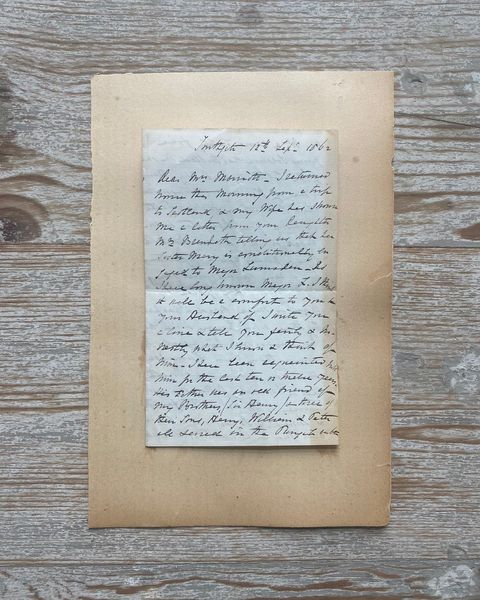 Southgate 18th Sept. 1862
Dear Mrs Marriott - I returned
home this Morning from a trip
to Scotland & my Wife has shown
me a letter from your Daughter
Mrs telling us that her
Sister Mary is conditionally En
gaged to Major Lumsden. As
I have long known Major L. I
it will be a comfort to you &
your Husband if I write you
a line & tell you fairly & ho
nestly what I know & think of
him. I have been acquainted with
him for the last ten or twelve years.
His Father was an old friend of
my Brothers, Sir Henry
their Sons, Henry, William & Peter
all served in the Punjab